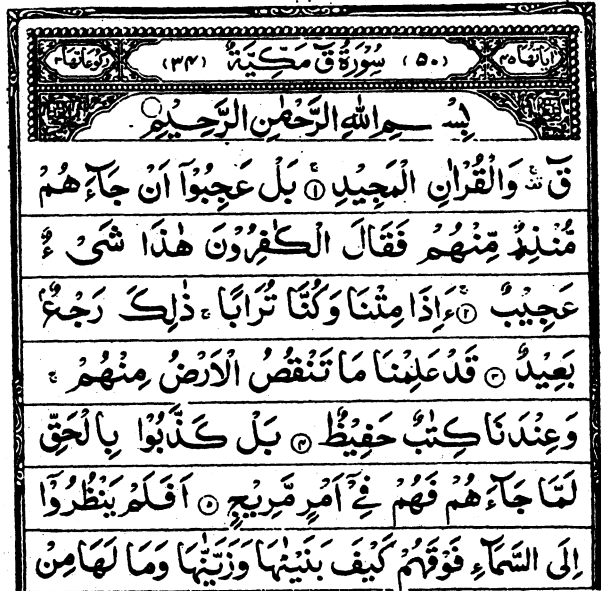 اٰیَاتُهَا ۴۵ (۵۰) سُوْرَةُ قٓ مَكِّيَّةٌ (۳۴) رُكُوْعَاتُهَا ۳
بِسْمِ اللهِ الرَّحْمٰنِ الرَّحِيْمِ
قٓ ۚ وَالْقُرْاٰنِ الْمَجِيْدِ ۚ﴿۱﴾ بَلْ عَجِبُوْۤا اَنْ جَآءَهُمْ
مُّنْذِرٌ مِّنْهُمْ فَقَالَ الْكٰفِرُوْنَ هٰذَا شَیْءٌ
عَجِيْبٌ ۚ﴿۲﴾ ءَاِذَا مِتْنَا وَكُنَّا تُرَابًا ۚ ذٰلِكَ رَجْعٌۢ
بَعِيْدٌ ﴿۳﴾ قَدْ عَلِمْنَا مَا تَنْقُصُ الْاَرْضُ مِنْهُمْ ۚ
وَعِنْدَنَا كِتٰبٌ حَفِيْظٌ ﴿۴﴾ بَلْ كَذَّبُوْا بِالْحَقِّ
لَمَّا جَآءَهُمْ فَهُمْ فِیْۤ اَمْرٍ مَّرِيْجٍ ﴿۵﴾ اَفَلَمْ يَنْظُرُوْۤا
اِلَی السَّمَآءِ فَوْقَهُمْ كَيْفَ بَنَيْنٰهَا وَزَيَّنّٰهَا وَمَا لَهَا مِنْ